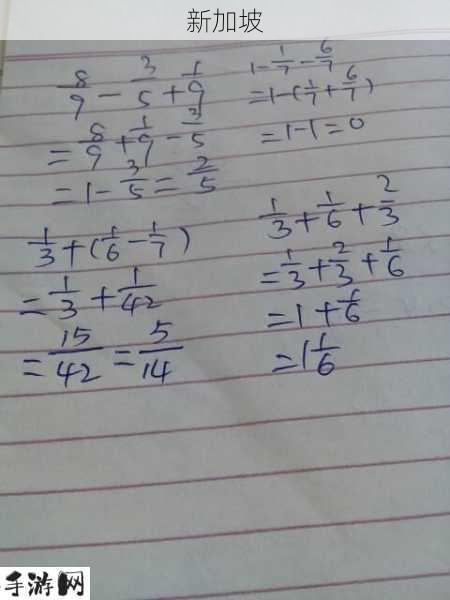 新加坡
8/9 - 3/5 + 1/9
= 8/9 + 1/9 - 3/5
= 1 - 3/5 = 2/5
1 - 1/7 - 6/7
= 1 - (1/7 + 6/7)
= 1 - 1 = 0
1/3 + (1/6 - 1/7)
= 1/3 + 1/42
= 15/42 = 5/14
1/3 + 1/6 + 2/3
= 1/3 + 2/3 + 1/6
= 1 + 1/6
= 1 1/6
手游网